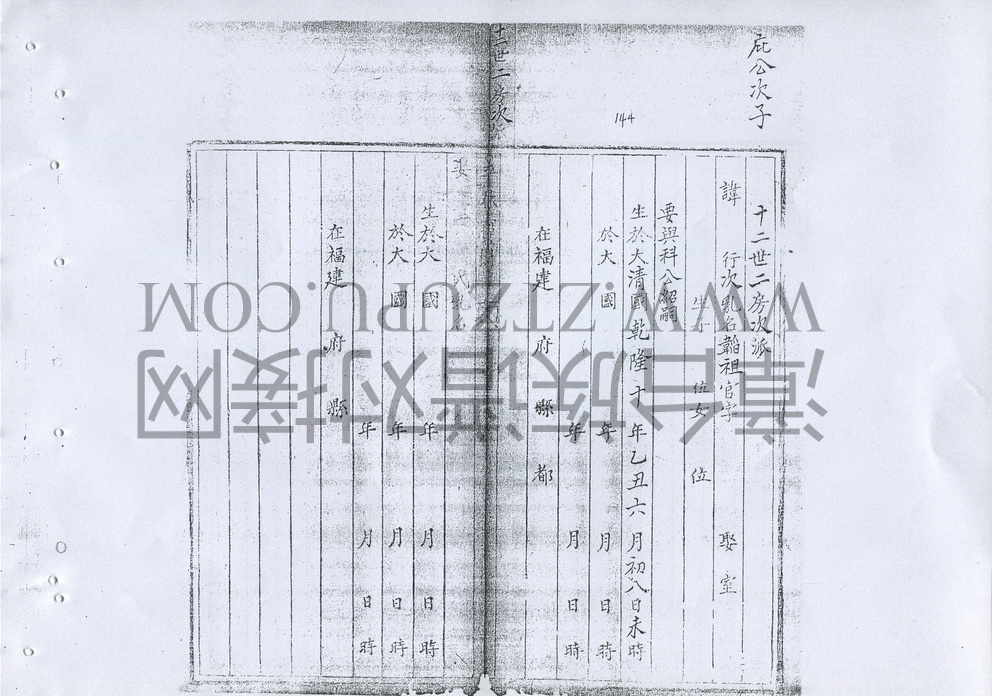 庇公次子
144
十二世二房次派
諱 行次 乳名韜祖 官字 娶 室
生子 位女 位
要與科公紹嗣
生於大清國乾隆十年乙丑六月初八日未時
於大 國 年 月 日 時
年 月 日 時
在福建 府 縣 都
十二世二房次
妻 氏
生於大 國 年 月 日 時
於大 國 年 月 日 時
年 月 日 時
在福建 府 縣
WWW.ZTZUPU.COM
漳台族谱对接网